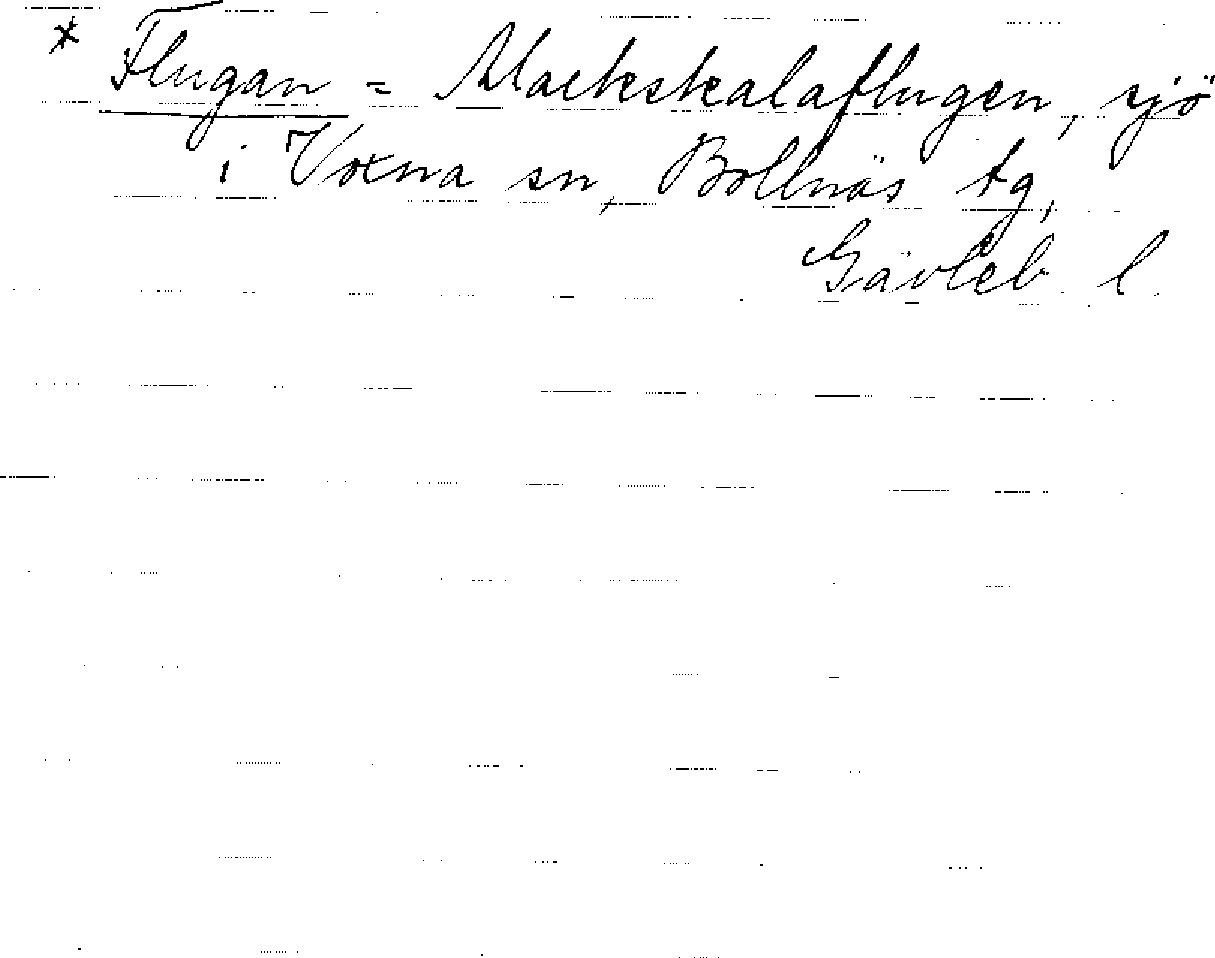 * Flugan = Mackskalaflugen, sjö
i Voxna sn, Bollnäs tg,
Gävleb. l.